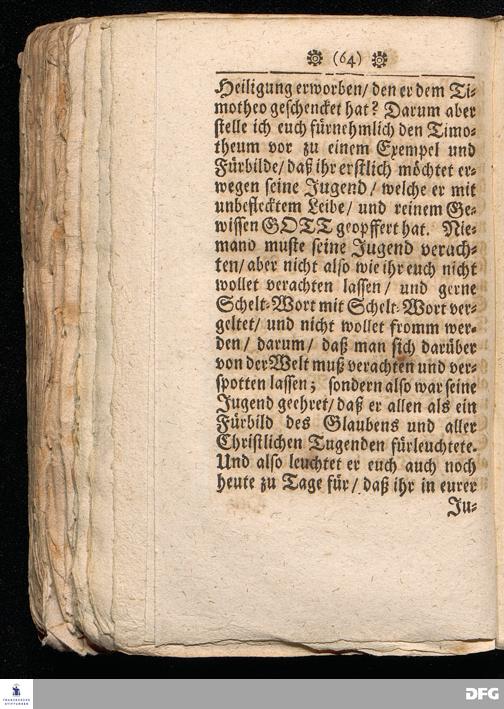 (64)
Heiligung erworben/ den er dem Ti-
motheo geschencket hat? Darum aber
stelle ich euch fürnehmlich den Timo-
theum vor zu einem Exempel und
Fürbilde/ daß ihr erstlich möchtet er-
wegen seine Jugend/ welche er mit
unbeflecktem Leibe/ und reinem Ge-
wissen GOTT geopffert hat. Nie-
mand muste seine Jugend verach-
ten/ aber nicht also wie ihr euch nicht
wollet verachten lassen/ und gerne
Schelt-Wort mit Schelt-Wort ver-
geltet/ und nicht wollet fromm wer-
den/ darum/ daß man sich darüber
von der Welt muß verachten und ver-
spotten lassen; sondern also war seine
Jugend geehret/ daß er allen als ein
Fürbild des Glaubens und aller
Christlichen Tugenden fürleuchtete.
Und also leuchtet er euch auch noch
heute zu Tage für/ daß ihr in eurer
Ju-
FRANCKESCHE
STIFTUNGEN
DFG